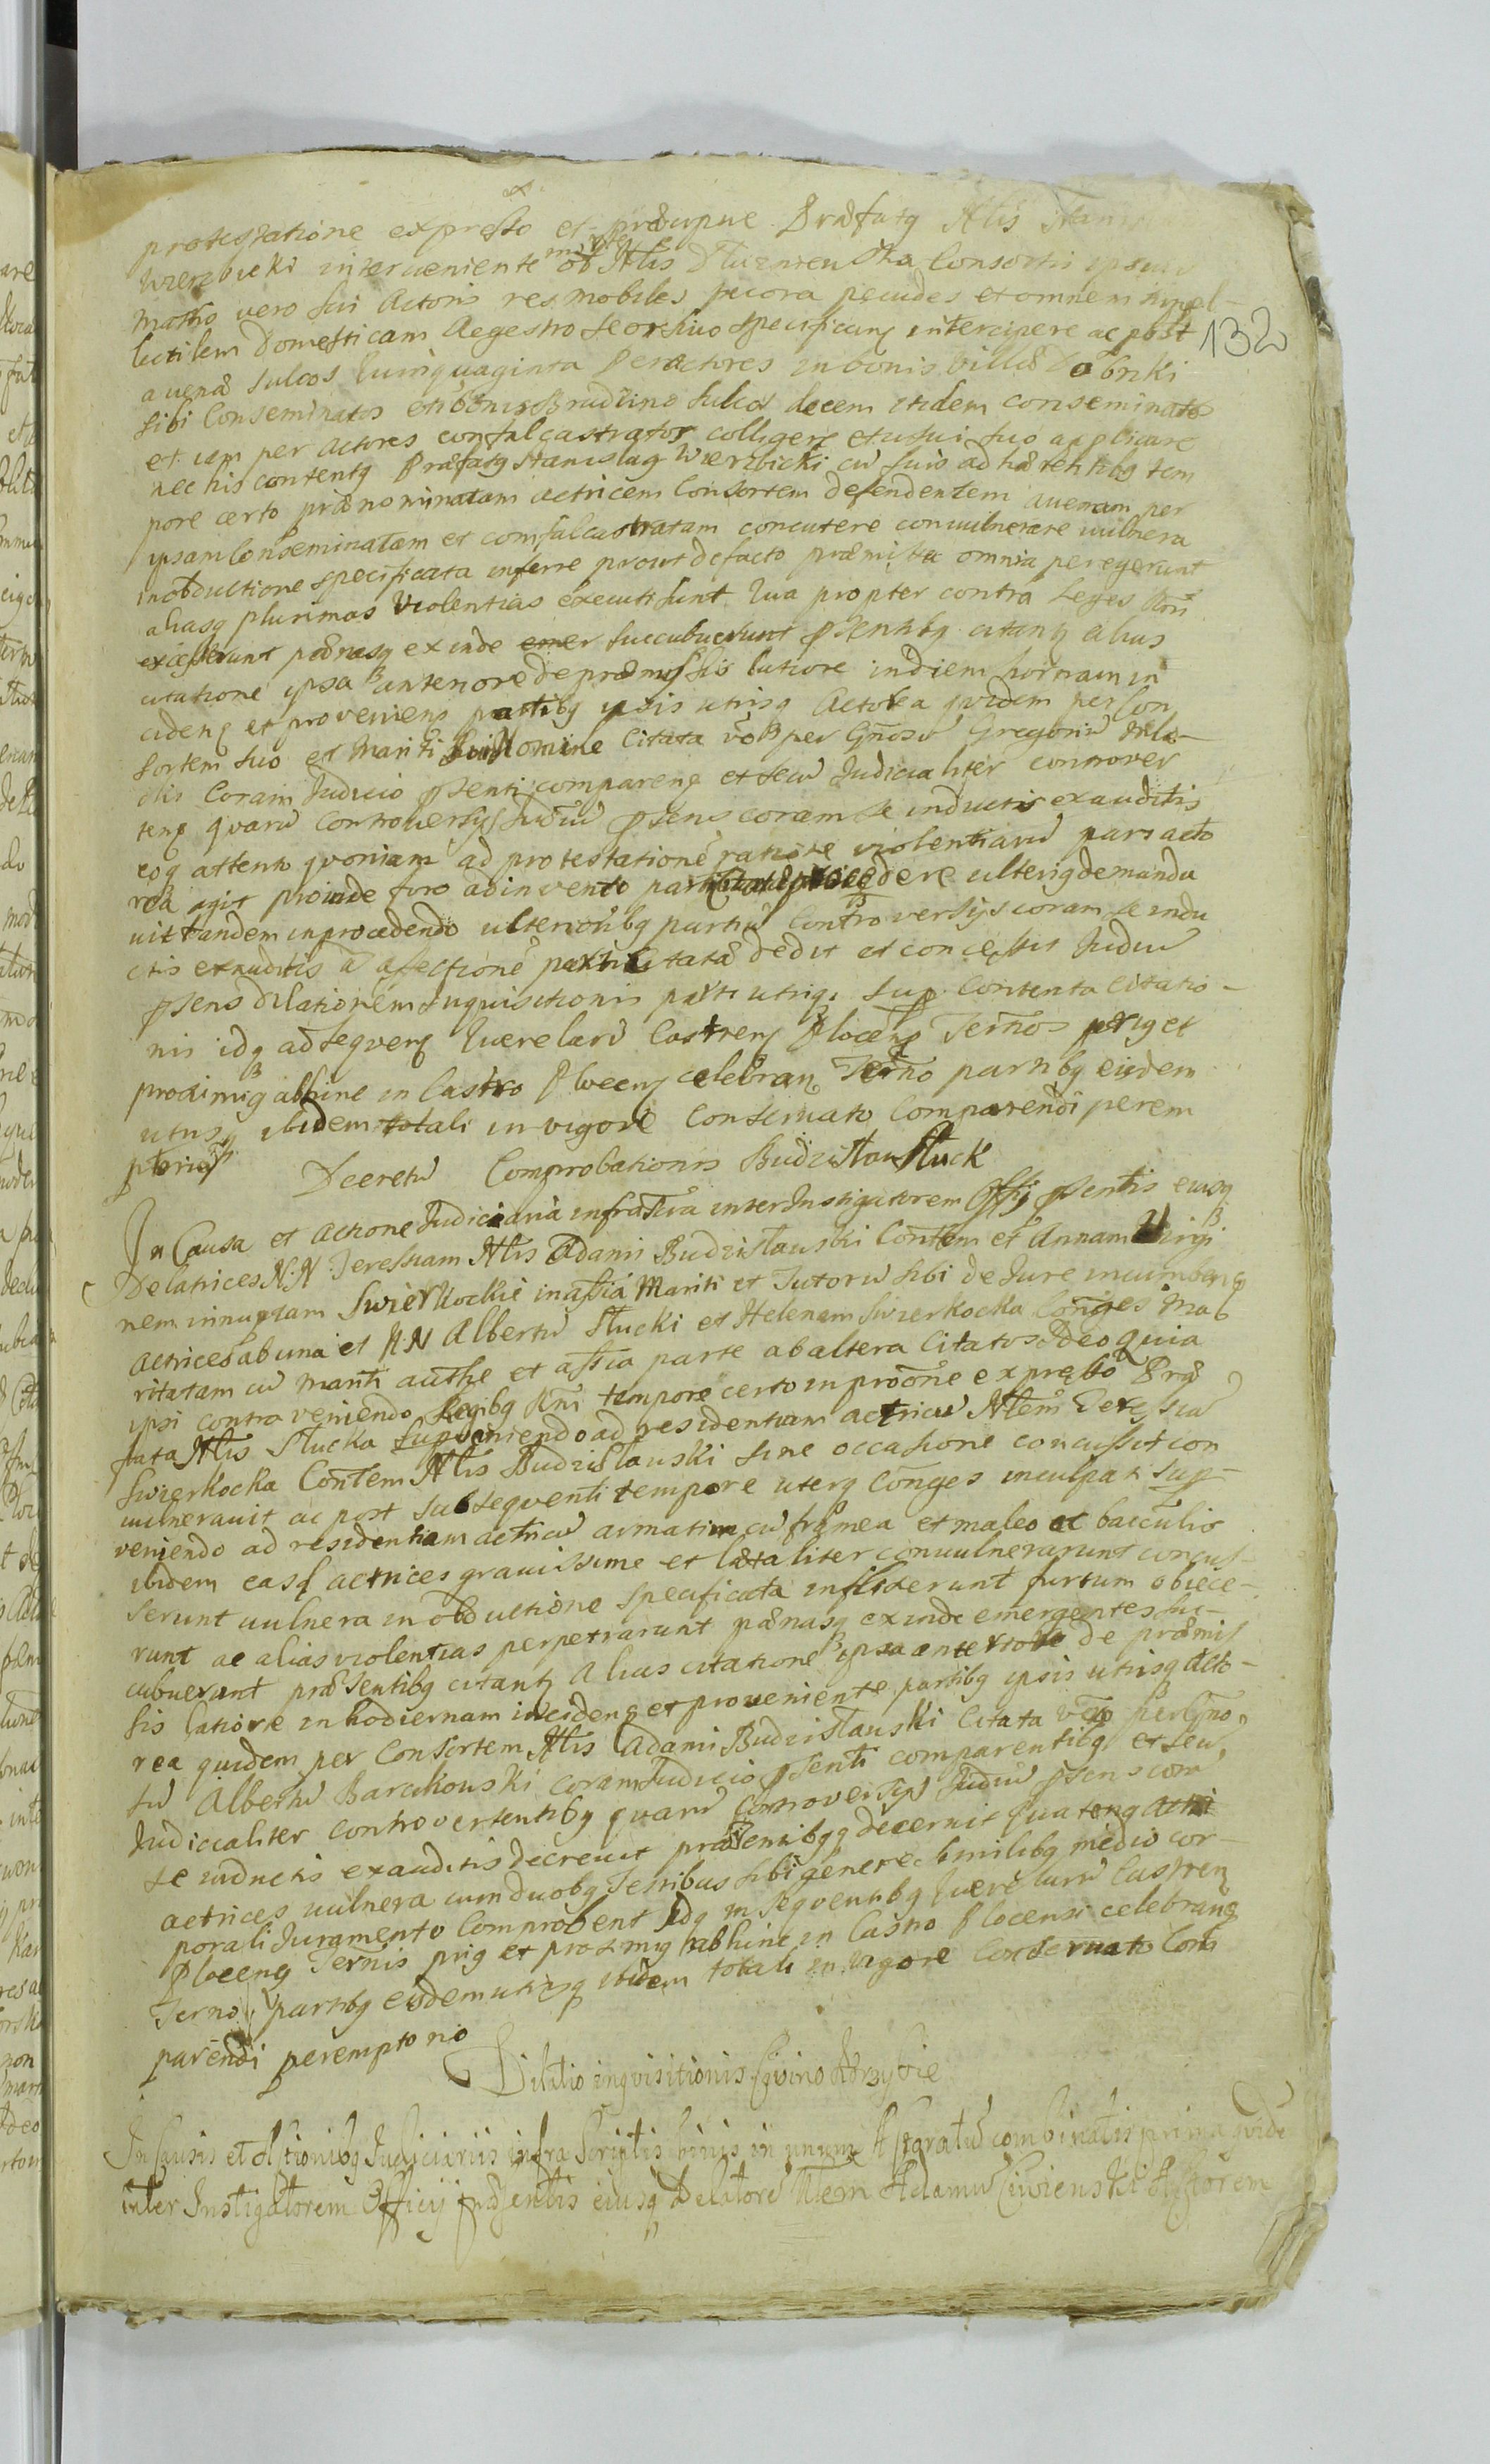 protestatione expresso et præcipue Præfatg Nlis
Wierzbicki interveniente Nlis Consorti ipsius
motho vero sui Actoris res mobiles pecora pecudes et omnem supel-
lectilem Domesticam Aegestro seorsivo specificanʒ intercipere ac post
avenæ sulcos quinquaginta per actores in bonis villæ Dobrki
sibi Conseminatos et in bonis Brudzino sulcos decem itidem conseminatos
et iam per actores confalcastratos colligere et usui suo applicare
nec his contentg Præfatg Stanislag Wierzbicki cū suis adhærentibg tem
pore certo prænominatam actricem Consortem defendentem avenam per
ipsam Conseminatam et confalcastratam concutere convulnerare vulnera
in obductione specificata inferre prout de facto præmissa omnia peregerunt
aliasq plurimas Violentias executi sunt Qua propter contra Leges Rni
excesserunt pœnasq exinde succubuerunt psentibg citanʒ alias
citatione ipsa anteriore de præmissis latiore in diem hodiernam in
cidenʒ et provenienʒ partibg ipsis utrisq Actorea quidem per Con
sortem suo et Mariti sui Nomine Citata vō per Gnosū Gregoriū
Coram Judicio psenti comparenʒ et secū Judicialiter controver
tenʒ quarū controversijs Judiū psens coram se inductis exauditis
eoq attento quoniam ad protestatione ratione violentiarū pars acto
rea agit proinde foro adinvento procedere ulterig demanda
vit tandem in procedendo ulteriotibg partiū Controversijs coram se indu
ctis exauditis ad afectione partis citatæ dedit et concessit Judiū
psens dilationem Inquisitionis parti utriq sup Contenta Citatio-
nis idq ad sequenʒ Querelarū Castrenʒ Plocenʒ Ternos prig et
proximig abhinc in Castro Plocenʒ celebranʒ Terno partibg eisdem
utrisq ibidem totali in vigore Conservato Comparendi perem
ptorie
Decretū Comprobationis Budzislaw Stuck
In Causa et actione Judiciaria infrascria inter Instigatorem Offy psentis eiusq
Delatrices N:N Teressiam Nlis Adami Budzislawski Contem et Annam Virgi
nem innuptam Swierkockie in assia Mariti et Tutorū sibi de Jure incumbenʒ
actrices ab una et NN Albertū Stucki et Helenam Swierkocka Conges Ma
ritatam cū mariti authe et assia parte ab altera Citatos Ideo Quia
ipsi contraveniendo Legibg Rni tempore certo in prōone expresso Præ
fata Nlis Stucka superveniendo ad residentiam actricū Nlem Teressia
Swierkocka Contem Nlis Budzislawski sine occasione concussit con
vulneravit ac post subsequenti tempore uterq Conges inculpati sup-
veniendo ad residentiam actricū armatim cū framea et maleo ac baculis
ibidem easq actrices gravissime et lætaliter convulnerarunt concus-
serunt vulnera in obductione specificata inflixerunt furtum obiece-
runt ac alias violentias perpetrarunt pœnasq exinde emergentes suc-
cubuerunt præsentibg citanʒ alias citatione ipsa anteriore de præmis
sis latiore in hodiernam incidenʒ et proveniente partibg ipsis utrisq Acto-
rea quidem per Consortem Nlis Adami Budzislawski Citata vero per Gno
sū Albertū Barcikowski coram Judicio psenti comparentibg et secū
Judicialiter controvertentibg quarū Controversijs Judiū psens cora
se inductis exauditis decrevit præsentibgq decernit Quateng
actrices vulnera cum duobg Testibus sibi genere similibg medio cor-
porali Juramento Comprobent Idq in sequentibg Querelarū Castren
Plocenʒ Ternis prig et proximig abhinc in Castro Plocensi celebranʒ
Terno partibg eisdem utrisq ibidem totali in vigore Conservato Com
parendi peremptorio
Dilatio inqvisitionis Ciwino
In Causis et Actionibg Judiciariis infra Scriptis binis in unum Asgratū combinatis prima qvide
inter Instigatorem Officij præsentis eiusq Delatore Nlem Adamū Ciwienski Actorem
132